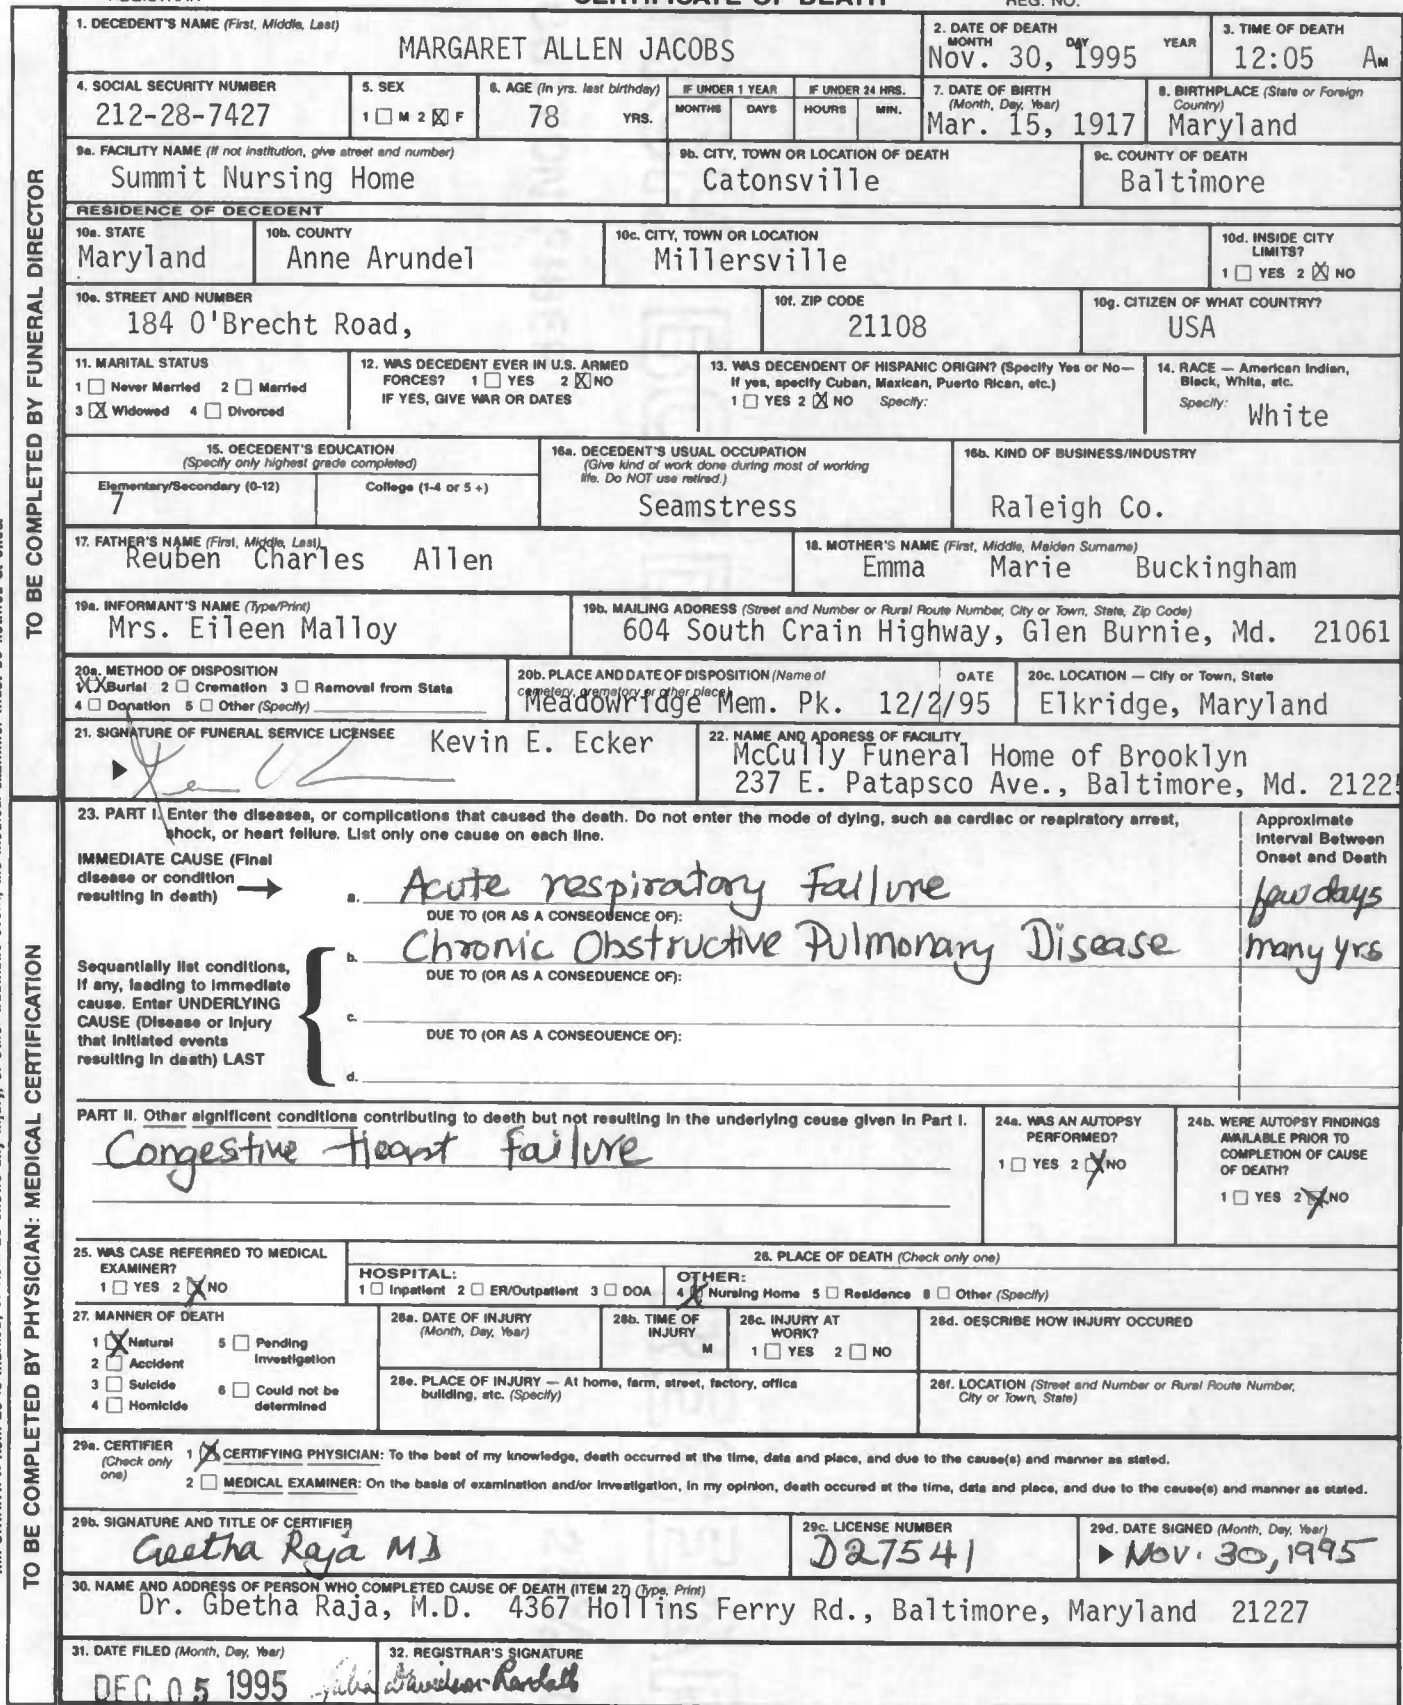 CERTIFICATE OF DEATH
REG. NO.
TO BE COMPLETED BY FUNERAL DIRECTOR
1. DECEDENT'S NAME (First, Middle, Last)
MARGARET ALLEN JACOBS
2. DATE OF DEATH
MONTH DAY YEAR
Nov. 30, 1995
3. TIME OF DEATH
12:05 AM
4. SOCIAL SECURITY NUMBER
212-28-7427
5. SEX
1 ☐ M 2 ☒ F
6. AGE (In yrs. last birthday)
78 YRS.
IF UNDER 1 YEAR
MONTHS DAYS
IF UNDER 24 HRS.
HOURS MIN.
7. DATE OF BIRTH
(Month, Day, Year)
Mar. 15, 1917
8. BIRTHPLACE (State or Foreign
Country)
Maryland
9a. FACILITY NAME (If not institution, give street and number)
Summit Nursing Home
9b. CITY, TOWN OR LOCATION OF DEATH
Catonsville
9c. COUNTY OF DEATH
Baltimore
RESIDENCE OF DECEDENT
10a. STATE
Maryland
10b. COUNTY
Anne Arundel
10c. CITY, TOWN OR LOCATION
Millersville
10d. INSIDE CITY
LIMITS?
1 ☐ YES 2 ☒ NO
10e. STREET AND NUMBER
184 O'Brecht Road,
10f. ZIP CODE
21108
10g. CITIZEN OF WHAT COUNTRY?
USA
11. MARITAL STATUS
1 ☐ Never Married 2 ☐ Married
3 ☒ Widowed 4 ☐ Divorced
12. WAS DECEDENT EVER IN U.S. ARMED
FORCES? 1 ☐ YES 2 ☒ NO
IF YES, GIVE WAR OR DATES
13. WAS DECENDENT OF HISPANIC ORIGIN? (Specify Yes or No—
If yes, specify Cuban, Mexican, Puerto Rican, etc.)
1 ☐ YES 2 ☒ NO Specify:
14. RACE — American Indian,
Black, White, etc.
Specify: White
15. DECEDENT'S EDUCATION
(Specify only highest grade completed)
Elementary/Secondary (0-12) College (1-4 or 5+)
7
16a. DECEDENT'S USUAL OCCUPATION
(Give kind of work done during most of working
life. Do NOT use retired.)
Seamstress
16b. KIND OF BUSINESS/INDUSTRY
Raleigh Co.
17. FATHER'S NAME (First, Middle, Last)
Reuben Charles Allen
18. MOTHER'S NAME (First, Middle, Maiden Surname)
Emma Marie Buckingham
19a. INFORMANT'S NAME (Type/Print)
Mrs. Eileen Malloy
19b. MAILING ADDRESS (Street and Number or Rural Route Number, City or Town, State, Zip Code)
604 South Crain Highway, Glen Burnie, Md. 21061
20a. METHOD OF DISPOSITION
1 ☒ Burial 2 ☐ Cremation 3 ☐ Removal from State
4 ☐ Donation 5 ☐ Other (Specify)
20b. PLACE AND DATE OF DISPOSITION (Name of
cemetery, crematory or other place) DATE
Meadowridge Mem. Pk. 12/2/95
20c. LOCATION — City or Town, State
Elkridge, Maryland
21. SIGNATURE OF FUNERAL SERVICE LICENSEE
Kevin E. Ecker
22. NAME AND ADDRESS OF FACILITY
McCully Funeral Home of Brooklyn
237 E. Patapsco Ave., Baltimore, Md. 21225
TO BE COMPLETED BY PHYSICIAN: MEDICAL CERTIFICATION
23. PART I. Enter the diseases, or complications that caused the death. Do not enter the mode of dying, such as cardiac or respiratory arrest,
shock, or heart failure. List only one cause on each line.
Approximate
Interval Between
Onset and Death
IMMEDIATE CAUSE (Final
disease or condition
resulting in death) →
a. Acute respiratory Failure few days
DUE TO (OR AS A CONSEQUENCE OF):
b. Chronic Obstructive Pulmonary Disease many yrs
DUE TO (OR AS A CONSEQUENCE OF):
Sequentially list conditions,
if any, leading to immediate
cause. Enter UNDERLYING
CAUSE (Disease or injury
that initiated events
resulting in death) LAST
c.
DUE TO (OR AS A CONSEQUENCE OF):
d.
PART II. Other significent conditions contributing to death but not resulting in the underlying cause given in Part I.
Congestive Heart Failure
24a. WAS AN AUTOPSY
PERFORMED?
1 ☐ YES 2 ☒ NO
24b. WERE AUTOPSY FINDINGS
AVAILABLE PRIOR TO
COMPLETION OF CAUSE
OF DEATH?
1 ☐ YES 2 ☒ NO
25. WAS CASE REFERRED TO MEDICAL
EXAMINER?
1 ☐ YES 2 ☒ NO
26. PLACE OF DEATH (Check only one)
HOSPITAL:
1 ☐ Inpatient 2 ☐ ER/Outpatient 3 ☐ DOA
OTHER:
4 ☒ Nursing Home 5 ☐ Residence 8 ☐ Other (Specify)
27. MANNER OF DEATH
1 ☒ Natural 5 ☐ Pending
Investigation
2 ☐ Accident
3 ☐ Suicide 6 ☐ Could not be
determined
4 ☐ Homicide
28a. DATE OF INJURY
(Month, Day, Year)
28b. TIME OF
INJURY
M
28c. INJURY AT
WORK?
1 ☐ YES 2 ☐ NO
28d. DESCRIBE HOW INJURY OCCURED
28e. PLACE OF INJURY — At home, farm, street, factory, office
building, etc. (Specify)
28f. LOCATION (Street and Number or Rural Route Number,
City or Town, State)
29a. CERTIFIER
(Check only
one)
1 ☒ CERTIFYING PHYSICIAN: To the best of my knowledge, death occurred at the time, date and place, and due to the cause(s) and manner as stated.
2 ☐ MEDICAL EXAMINER: On the basis of examination and/or investigation, in my opinion, death occured at the time, data and place, and due to the cause(s) and manner as stated.
29b. SIGNATURE AND TITLE OF CERTIFIER
Geetha Raja MD
29c. LICENSE NUMBER
D27541
29d. DATE SIGNED (Month, Day, Year)
▶ Nov. 30, 1995
30. NAME AND ADDRESS OF PERSON WHO COMPLETED CAUSE OF DEATH (ITEM 27) (Type, Print)
Dr. Gbetha Raja, M.D. 4367 Hollins Ferry Rd., Baltimore, Maryland 21227
31. DATE FILED (Month, Day, Year)
DEC 05 1995
32. REGISTRAR'S SIGNATURE